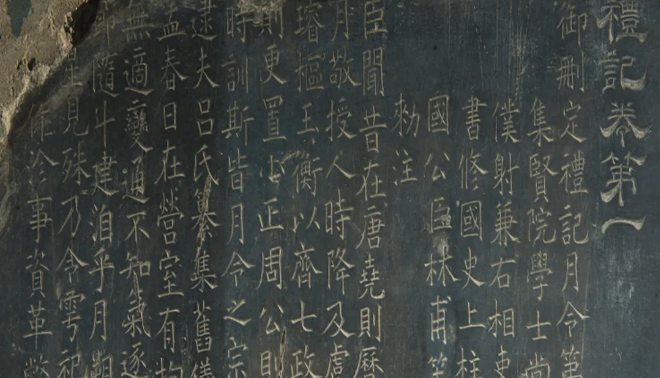 禮記卷第一
御刪定禮記月令第
集賢院學士尚
僕射兼右相吏
書修國史上柱
國公臣林甫等
勑注
臣聞昔在唐堯則曆
月敬授人時降及虞
璿樞玉衡以齊七政
則更置小正周公則
時訓斯皆月令之宗
逮夫呂氏纂集舊儀
孟春日在營室有拘
無適變通不知氣逐
隨斗建洎乎月朔
星見殊乃令雩祀
沴事資革弊